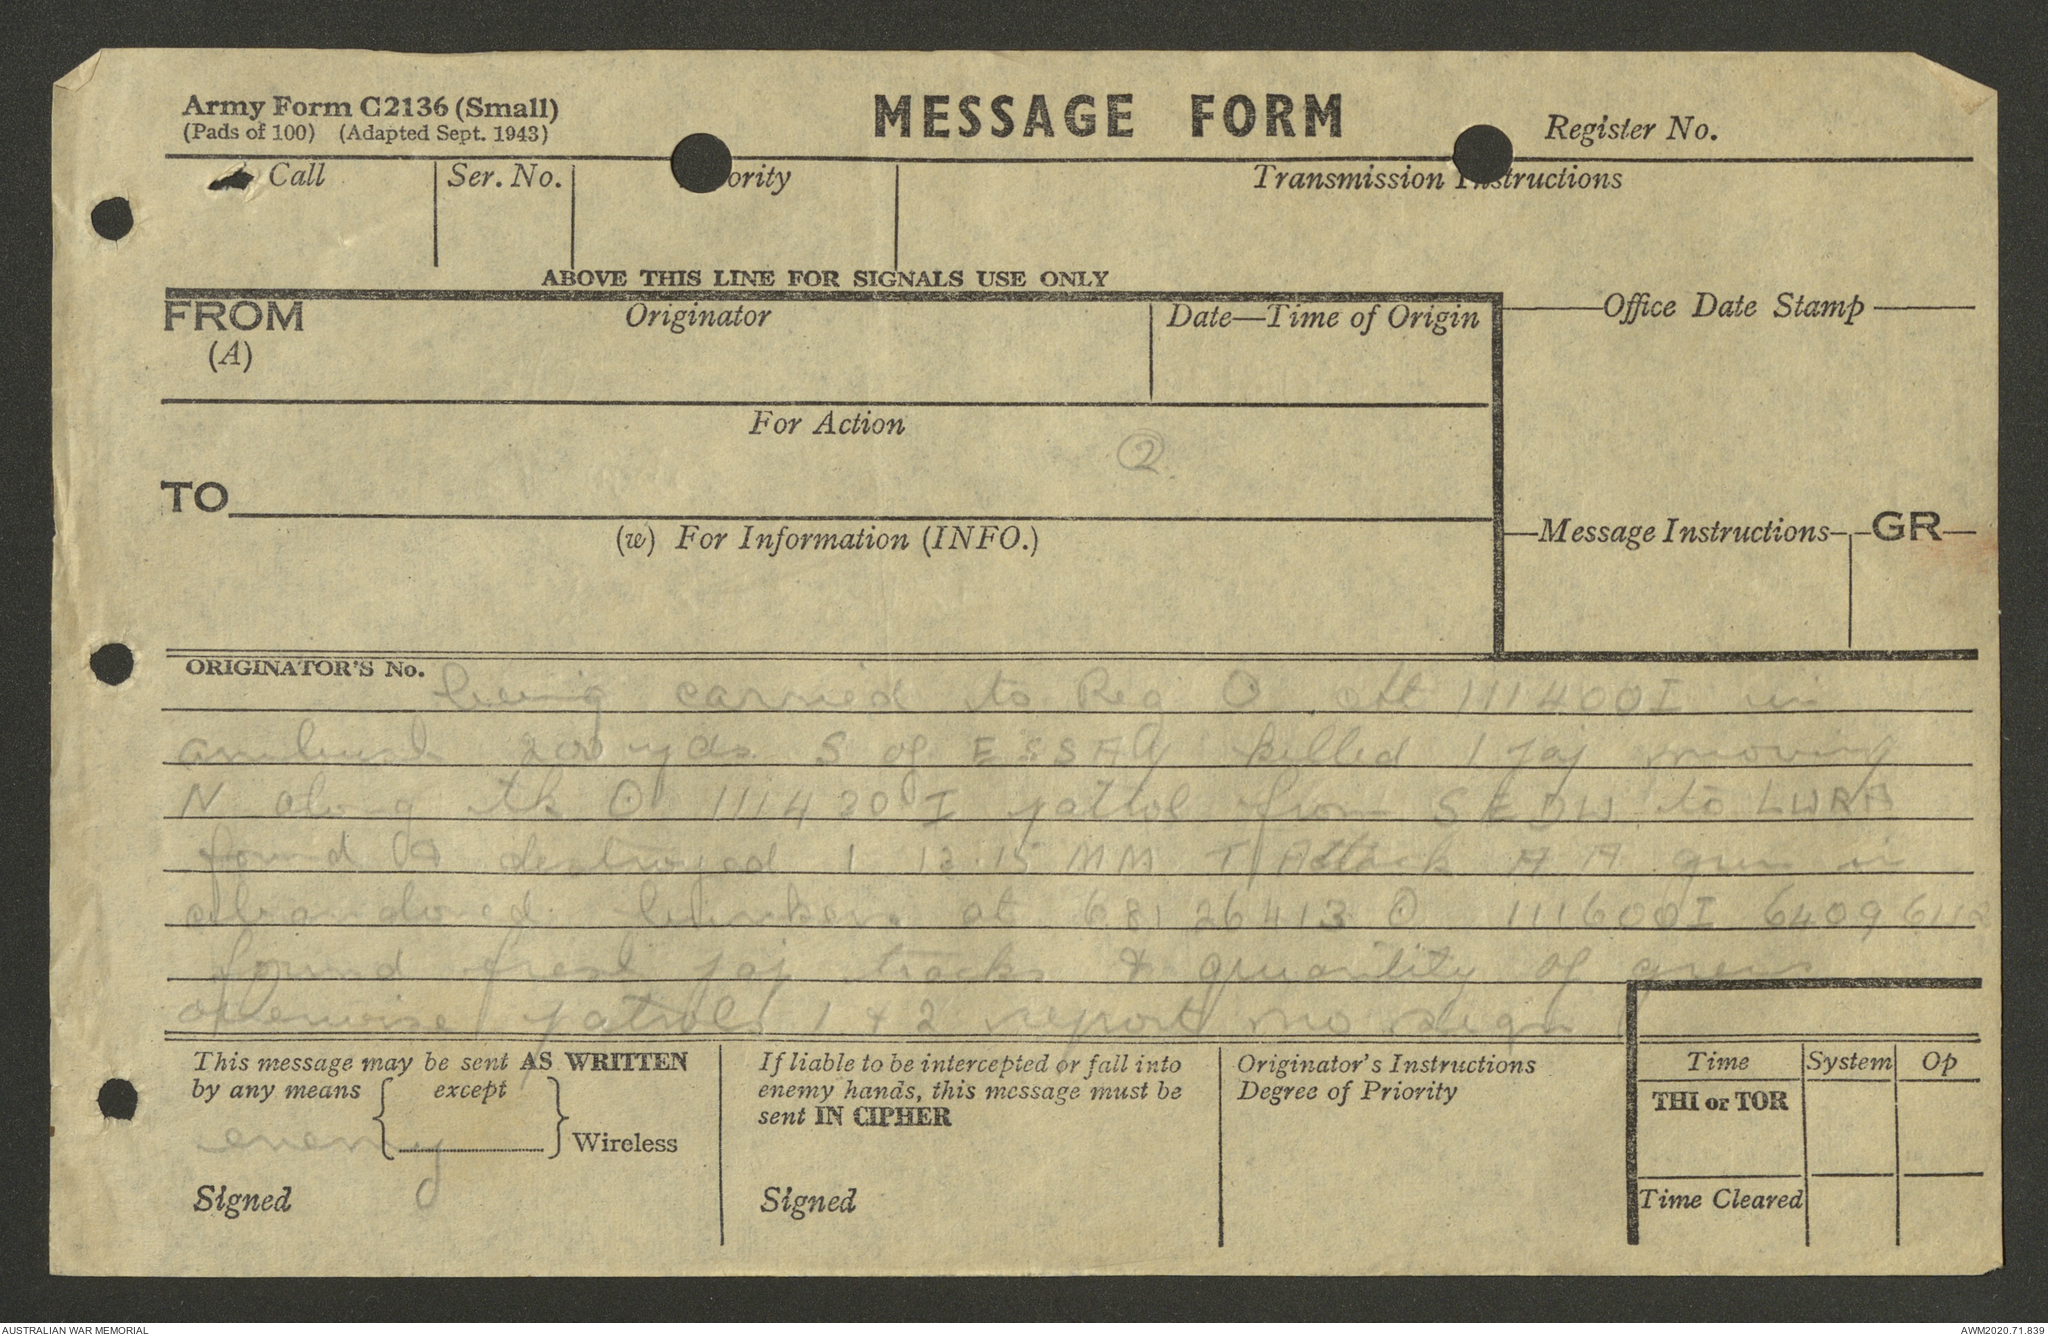 Army Form C2136 (Small)
(Pads of 100) (Adapted Sept. 1943)
MESSAGE FORM
Register No.
Call
Ser. No.
ority
Transmission Instructions
ABOVE THIS LINE FOR SIGNALS USE ONLY
FROM
(A)
Originator
Date—Time of Origin
Office Date Stamp
For Action
2
TO
(w) For Information (INFO.)
Message Instructions
GR
ORIGINATOR'S No.
being carried to Reg O 111400I in
ambush 200 yds S of killed 1 jap moving
N along tk O 111430 I patrol from SEDW to LWRA
found & destroyed 1 MM gun in
abandoned bunker at 68126413 O 111600I 64096112
found fresh jap tracks & quantity of
patrols 1 & 2 report no sign
enemy
This message may be sent AS WRITTEN
by any means except
Wireless
Signed
If liable to be intercepted or fall into
enemy hands, this message must be
sent IN CIPHER
Signed
Originator's Instructions
Degree of Priority
Time
System
Op
THI or TOR
Time Cleared
AUSTRALIAN WAR MEMORIAL
AWM2020.71.839